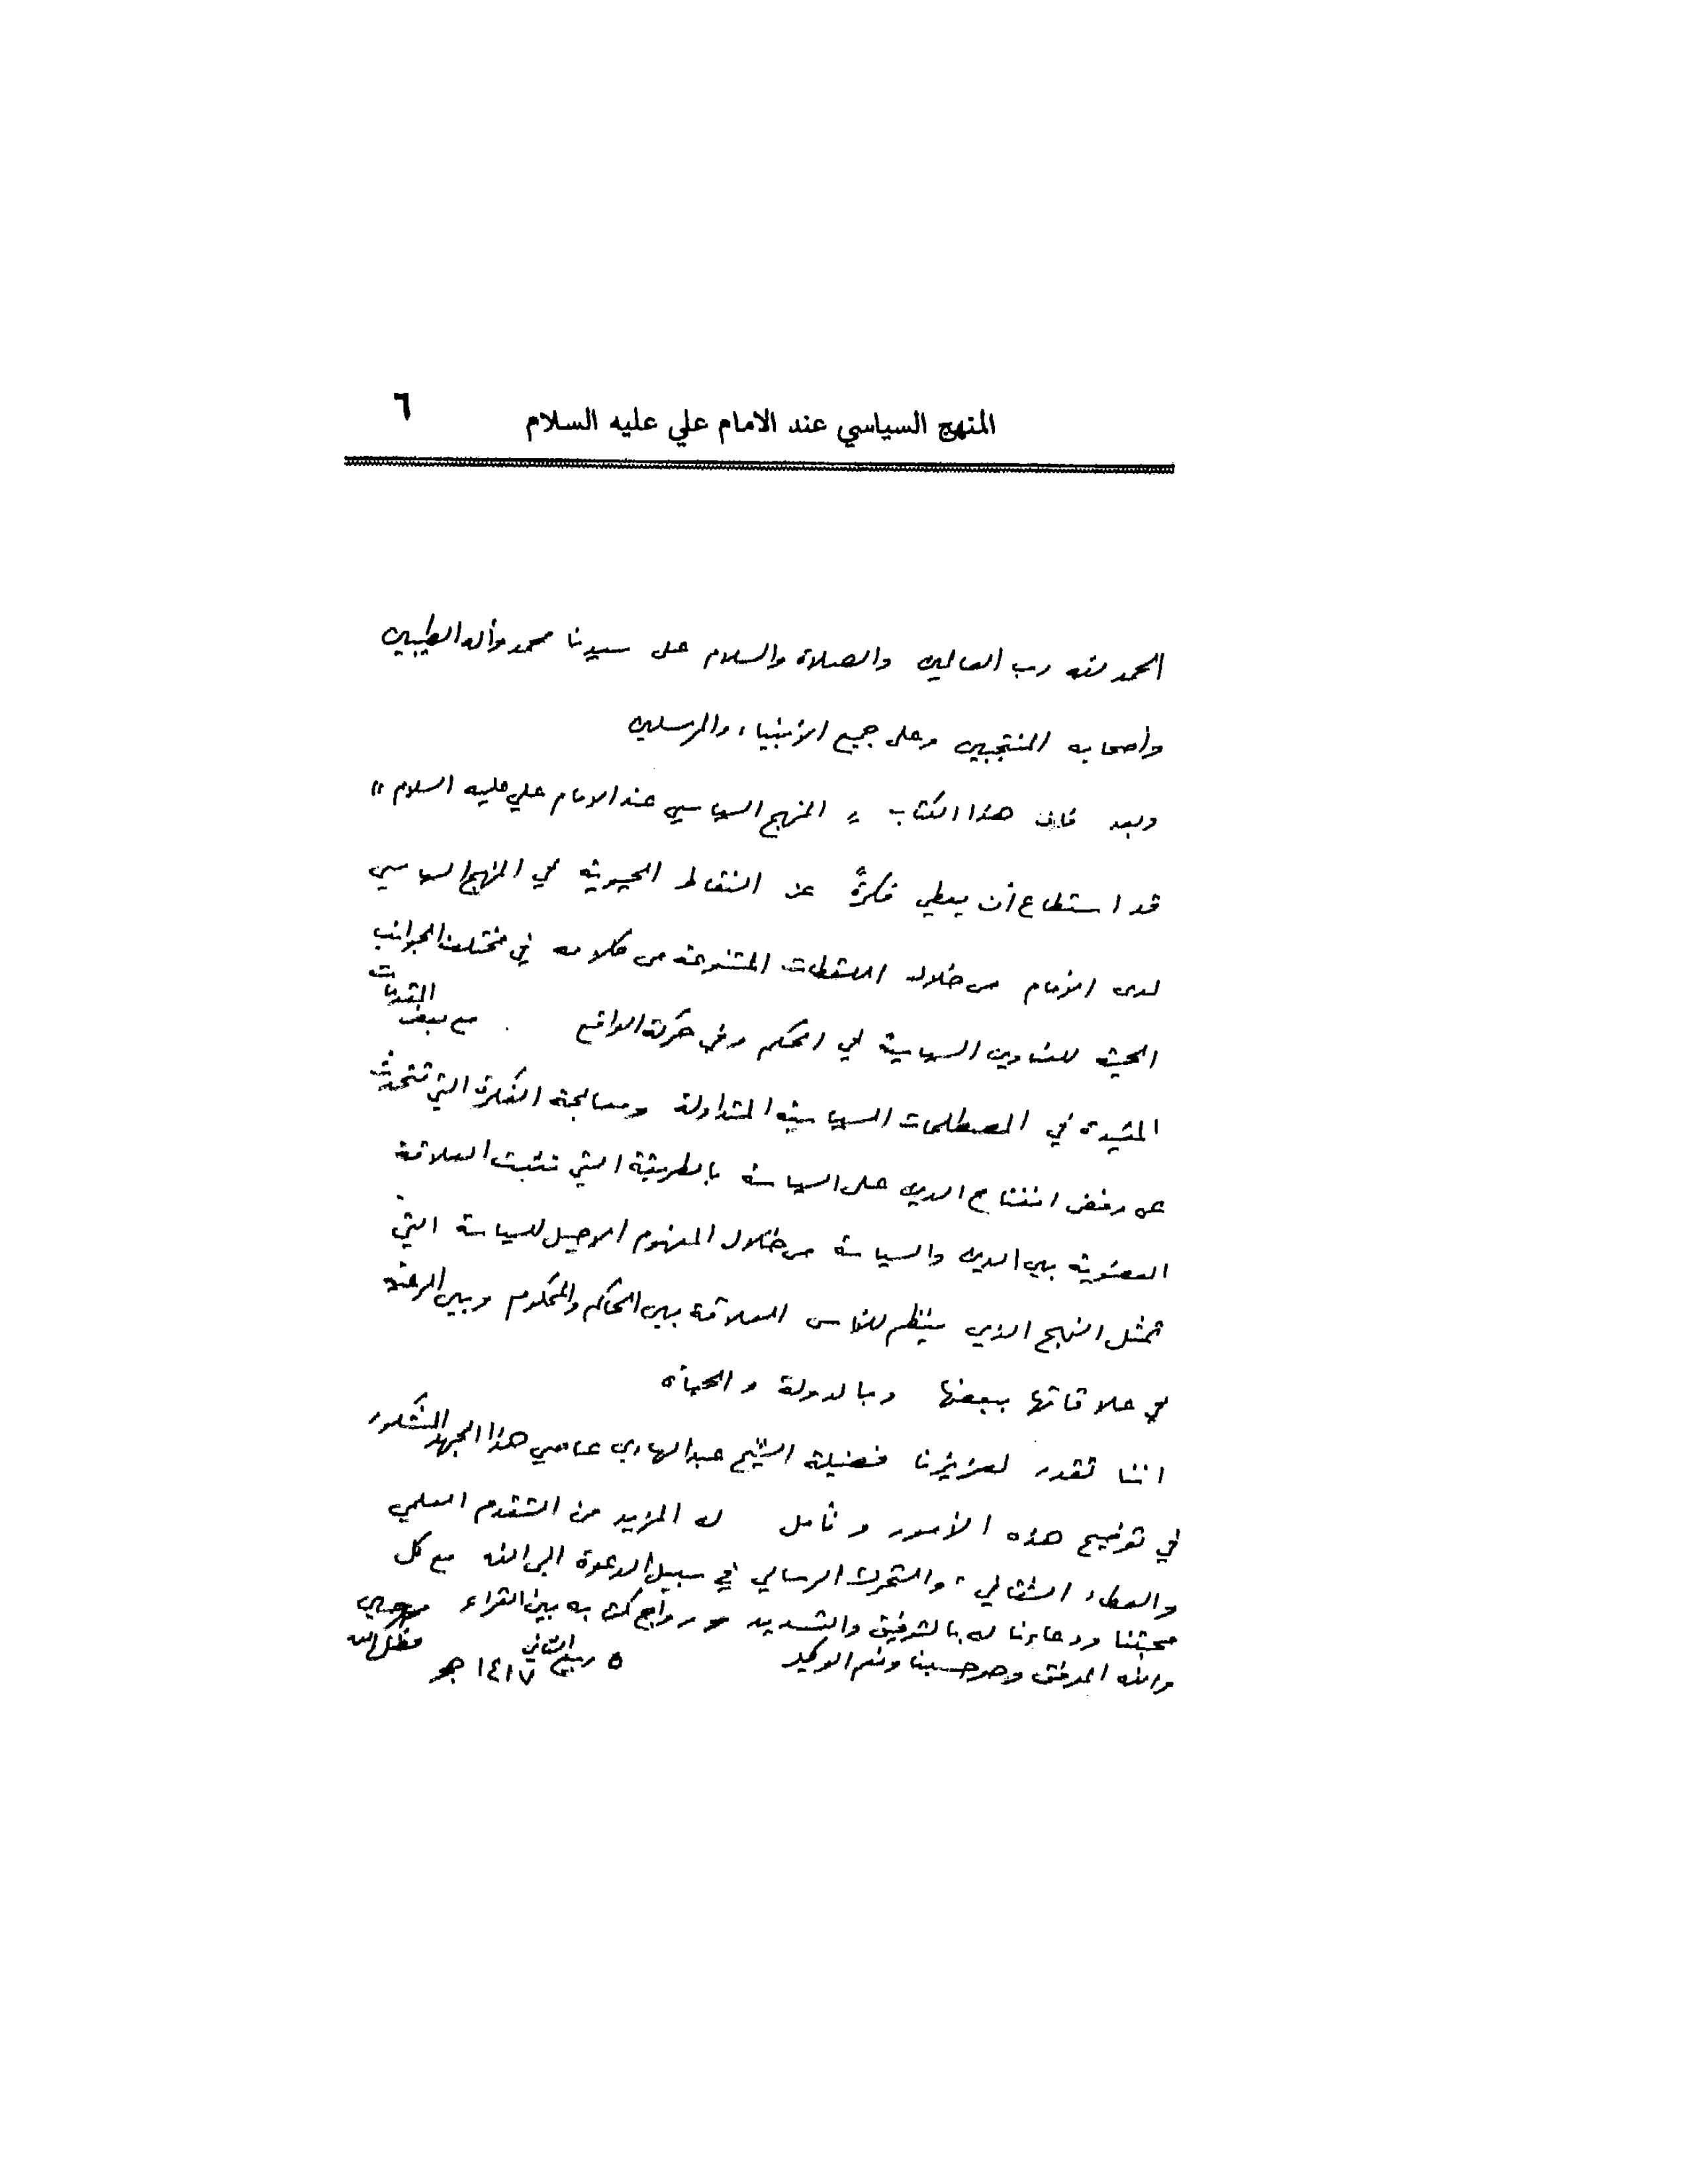 المنهج السياسي عند الامام علي عليه السلام ٦
الحمد لله رب العالمين والصلاة والسلام على سيدنا محمد وآله الطيبين
وأصحابه المنتجبين وعلى جميع الأنبياء والمرسلين
وبعد فان هذا الكتاب " المنهج السياسي عند الامام علي عليه السلام "
قد استطاع أن يعطي فكرةً عن النقاط الحيوية في المنهج السياسي
لدى الإمام من خلال اللقطات المتنوعة من كلامه في مختلف الجوانب
الحية للعناوين السياسية في الحكم وفي حركة الواقع مع بعض
المفيدة في المصطلحات السياسية المتداولة ومعالجة الفكرة التي تتحدث
عن رفض انفتاح الدين على السياسة بالطريقة التي تثبت العلاقة
العضوية بين الدين والسياسة من خلال المفهوم الاصيل للسياسة التي
تمثل النهج الذي ينظم للناس العلاقة بين الحاكم والمحكوم وبين
في علاقاتها ببعضها وبالدولة والحياة
اننا نقدر لعزيزنا فضيلة الشيخ عبدالهادي عاصي هذا الجهد المشكور
في توضيح هذه الأمور ونأمل له المزيد من التقدم العلمي
والعطاء الثقافي، والتحرك الرسالي في سبيل الدعوة الى الله مع كل
محبتنا ودعاءنا له بالتوفيق والتسديد ورواج كتابه بين القراء
والله الموفق وهو حسبنا ونعم الوكيل ٥ ربيع الثاني ١٤١٧ هـ